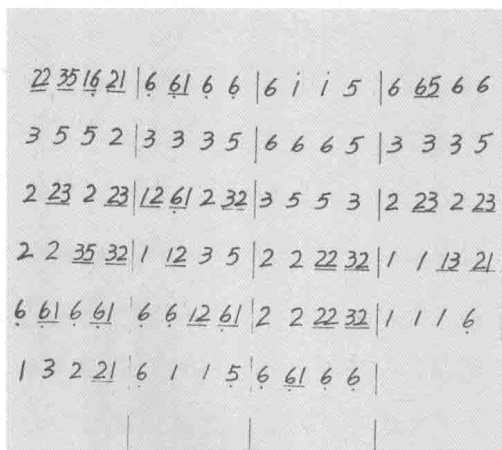 22 35 16̣ 21 | 6̣ 6̣1 6̣ 6̣ | 6 i i 5 | 6 65 6 6
3 5 5 2 | 3 3 3 5 | 6 6 6 5 | 3 3 3 5
2 23 2 23 | 12 6̣1 2 32 | 3 5 5 3 | 2 23 2 23
2 2 35 32 | 1 12 3 5 | 2 2 22 32 | 1 1 13 21
6̣ 6̣1 6̣ 6̣1 | 6̣ 6̣ 12 6̣1 | 2 2 22 32 | 1 1 1 6̣
1 3 2 21 | 6̣ 1 1 5̣ | 6̣ 6̣1 6̣ 6̣ |